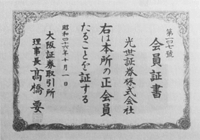 第一四七號
会員証書
光世証券株式会社
右は本所の正会員
たることを証する
昭和四十六年十月一日
大阪証券取引所
理事長 高橋 要